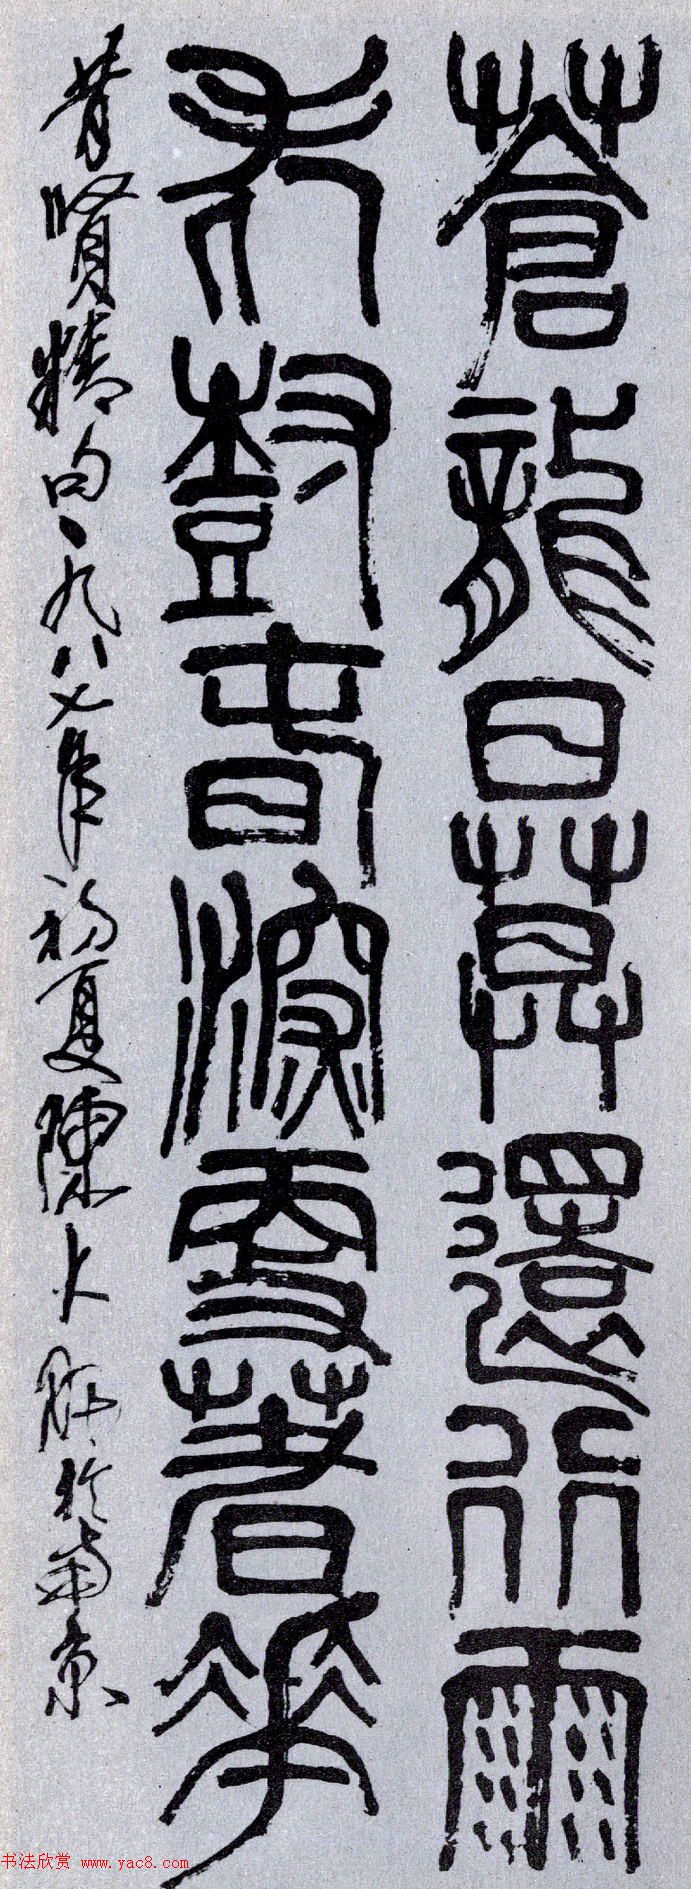 蒼龍日莫還行雨
老樹春深更著華
昔賢精句一九八七年初夏陳大羽於南京
书法欣赏 www.yac8.com